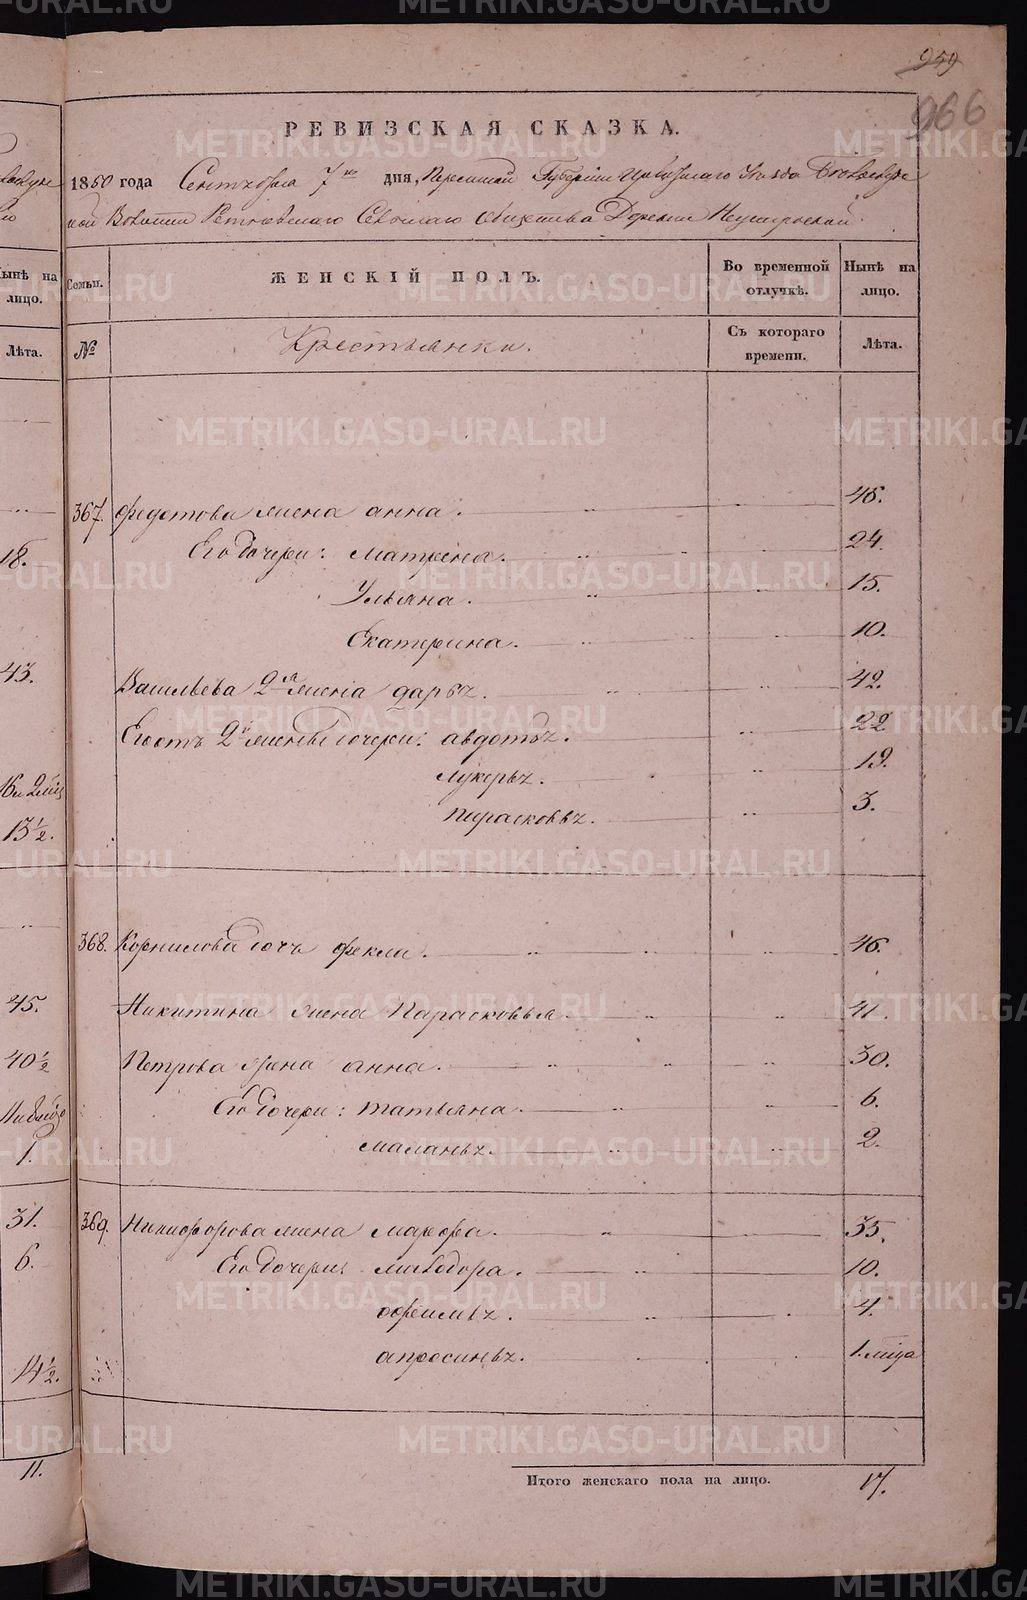 959
966
РЕВИЗСКАЯ СКАЗКА.
1850 года Сентября 7го дня, Пермской Губерніи Уезда
Волости Сельскаго Общества Деревни
Семьи. ЖЕНСКІЙ ПОЛЪ. Во временной отлучкѣ. Нынѣ на лицо.
№ Крестьянки. Съ котораго времени. Лѣта.
367. Федотова жена анна. 46.
Его дочери: матрена. 24.
Ульяна. 15.
Екатерина. 10.
Васильева 2я жена дарья. 42.
Его отъ 2й жены дочери: авдотья. 22
лукерья. 19.
парасковья. 3.
368. Корнилова дочь фекла. 46.
Никитина жена Парасковья 41.
Петрова жена анна. 30.
Его дочери: татьяна. 6.
маланья. 2.
369. Никифорова жена марфа. 35.
Его дочери: митодора. 10.
офимья. 4.
апросинья. 1. мца
Итого женскаго пола на лицо. 17.
Нынѣ на лицо.
Лѣта.
18.
43.
13½.
45.
40½
1.
31.
6.
14½.
11.
METRIKI.GASO-URAL.RU